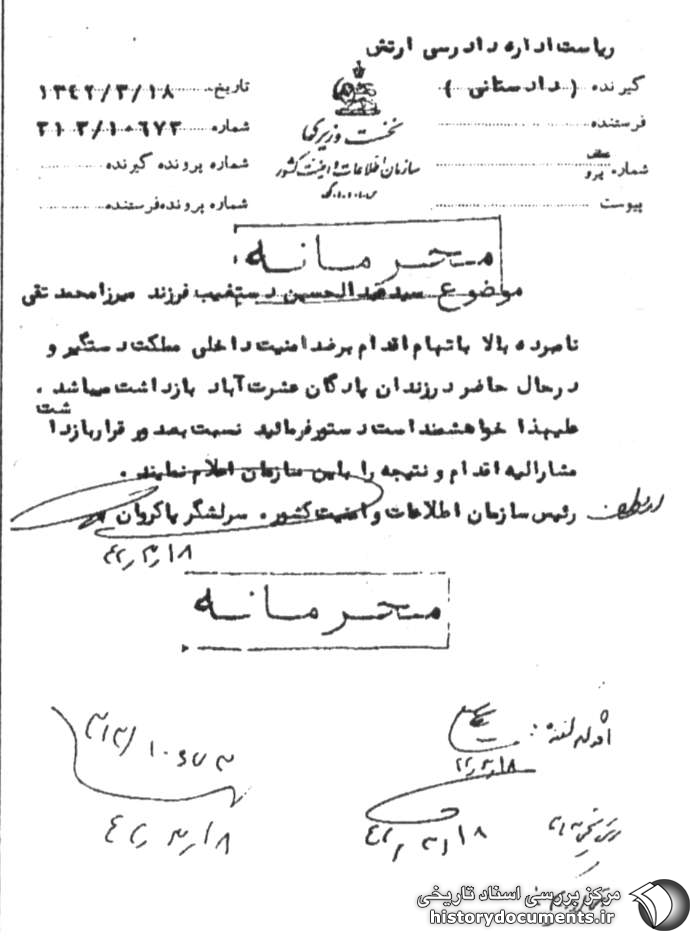 ریاست اداره دادرسی ارتش
گیرنده (دادستانی)
فرستنده
شماره عطف پرو
پیوست
نخست وزیری
سازمان اطلاعات و امنیت کشور
س.ا.و.ا.ک
تاریخ ۱۳۴۲/۳/۱۸
شماره ۳۱۲/۱۰۶۷۳
شماره پرونده گیرنده
شماره پرونده فرستنده
محرمانه
موضوع سید عبدالحسین دستغیب فرزند میرزا محمد تقی
نامبرده بالا باتهام اقدام برضد امنیت داخلی مملکت دستگیر و
درحال حاضر درزندان پادگان عشرت آباد بازداشت میباشد.
علیهذا خواهشمند است دستور فرمائید نسبت بصدور قرار بازداشت
مشارالیه اقدام و نتیجه را باین سازمان اعلام نمایند.
رئیس سازمان اطلاعات و امنیت کشور. سرلشگر پاکروان
۴۲٫۳٫۱۸
محرمانه
اقدام کننده:
۴۲٫۳٫۱۸
۳۱۲/۱۰۶۷۳
۴۲٫۳٫۱۸
۴۲٫۳٫۱۸
مرکز بررسی اسناد تاریخی
historydocuments.ir